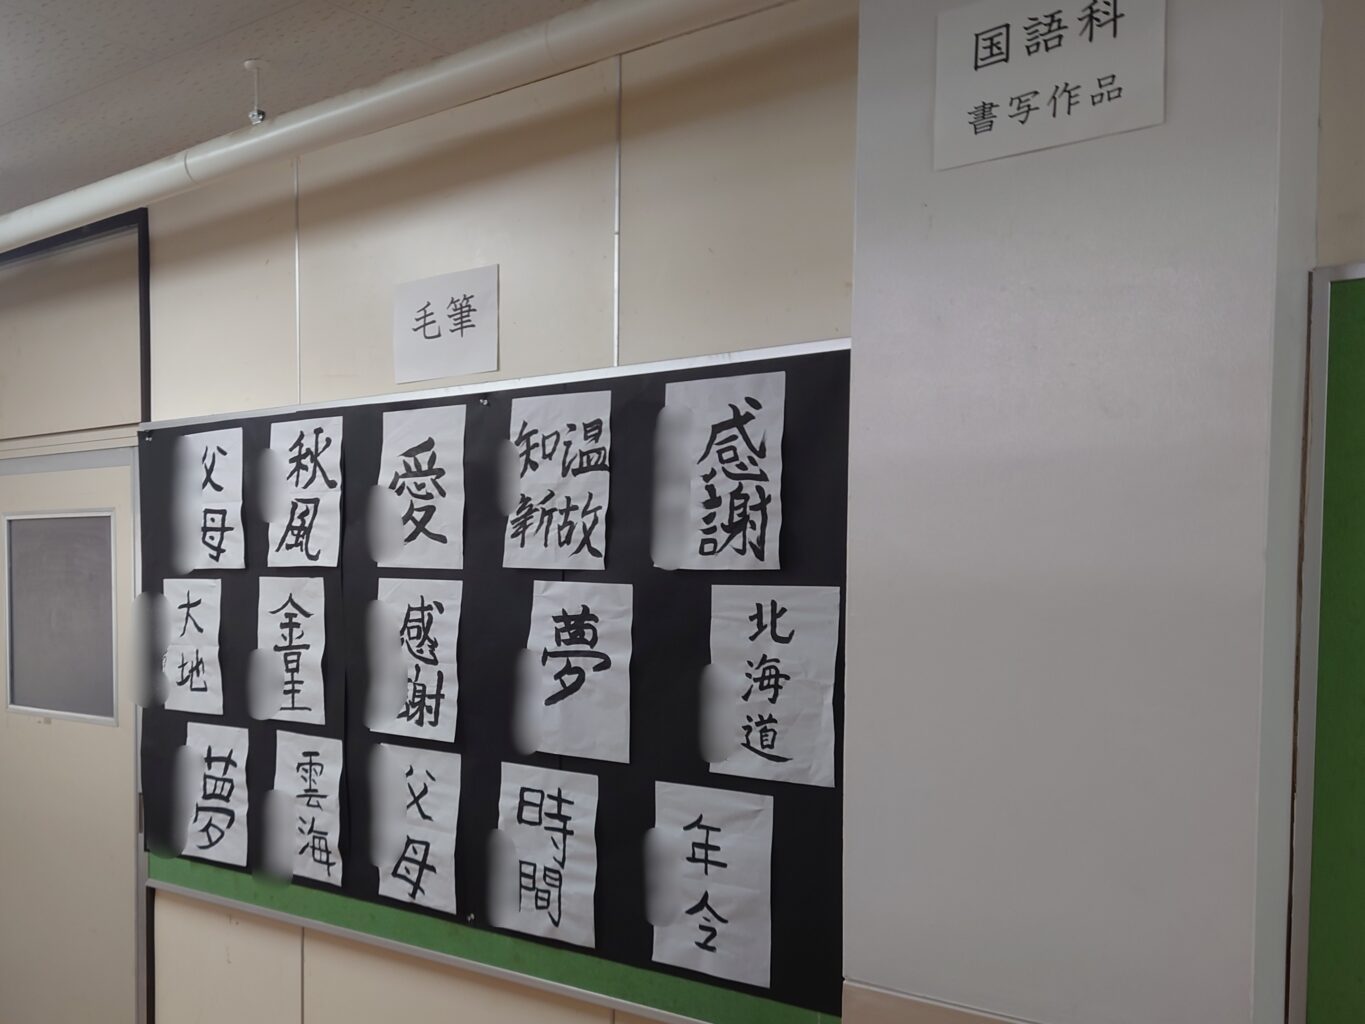 国語科
書写作品
毛筆
父母
秋風
愛
温故
知新
感謝
大地
金星
感謝
夢
北海道
夢
雲海
父母
時間
年令